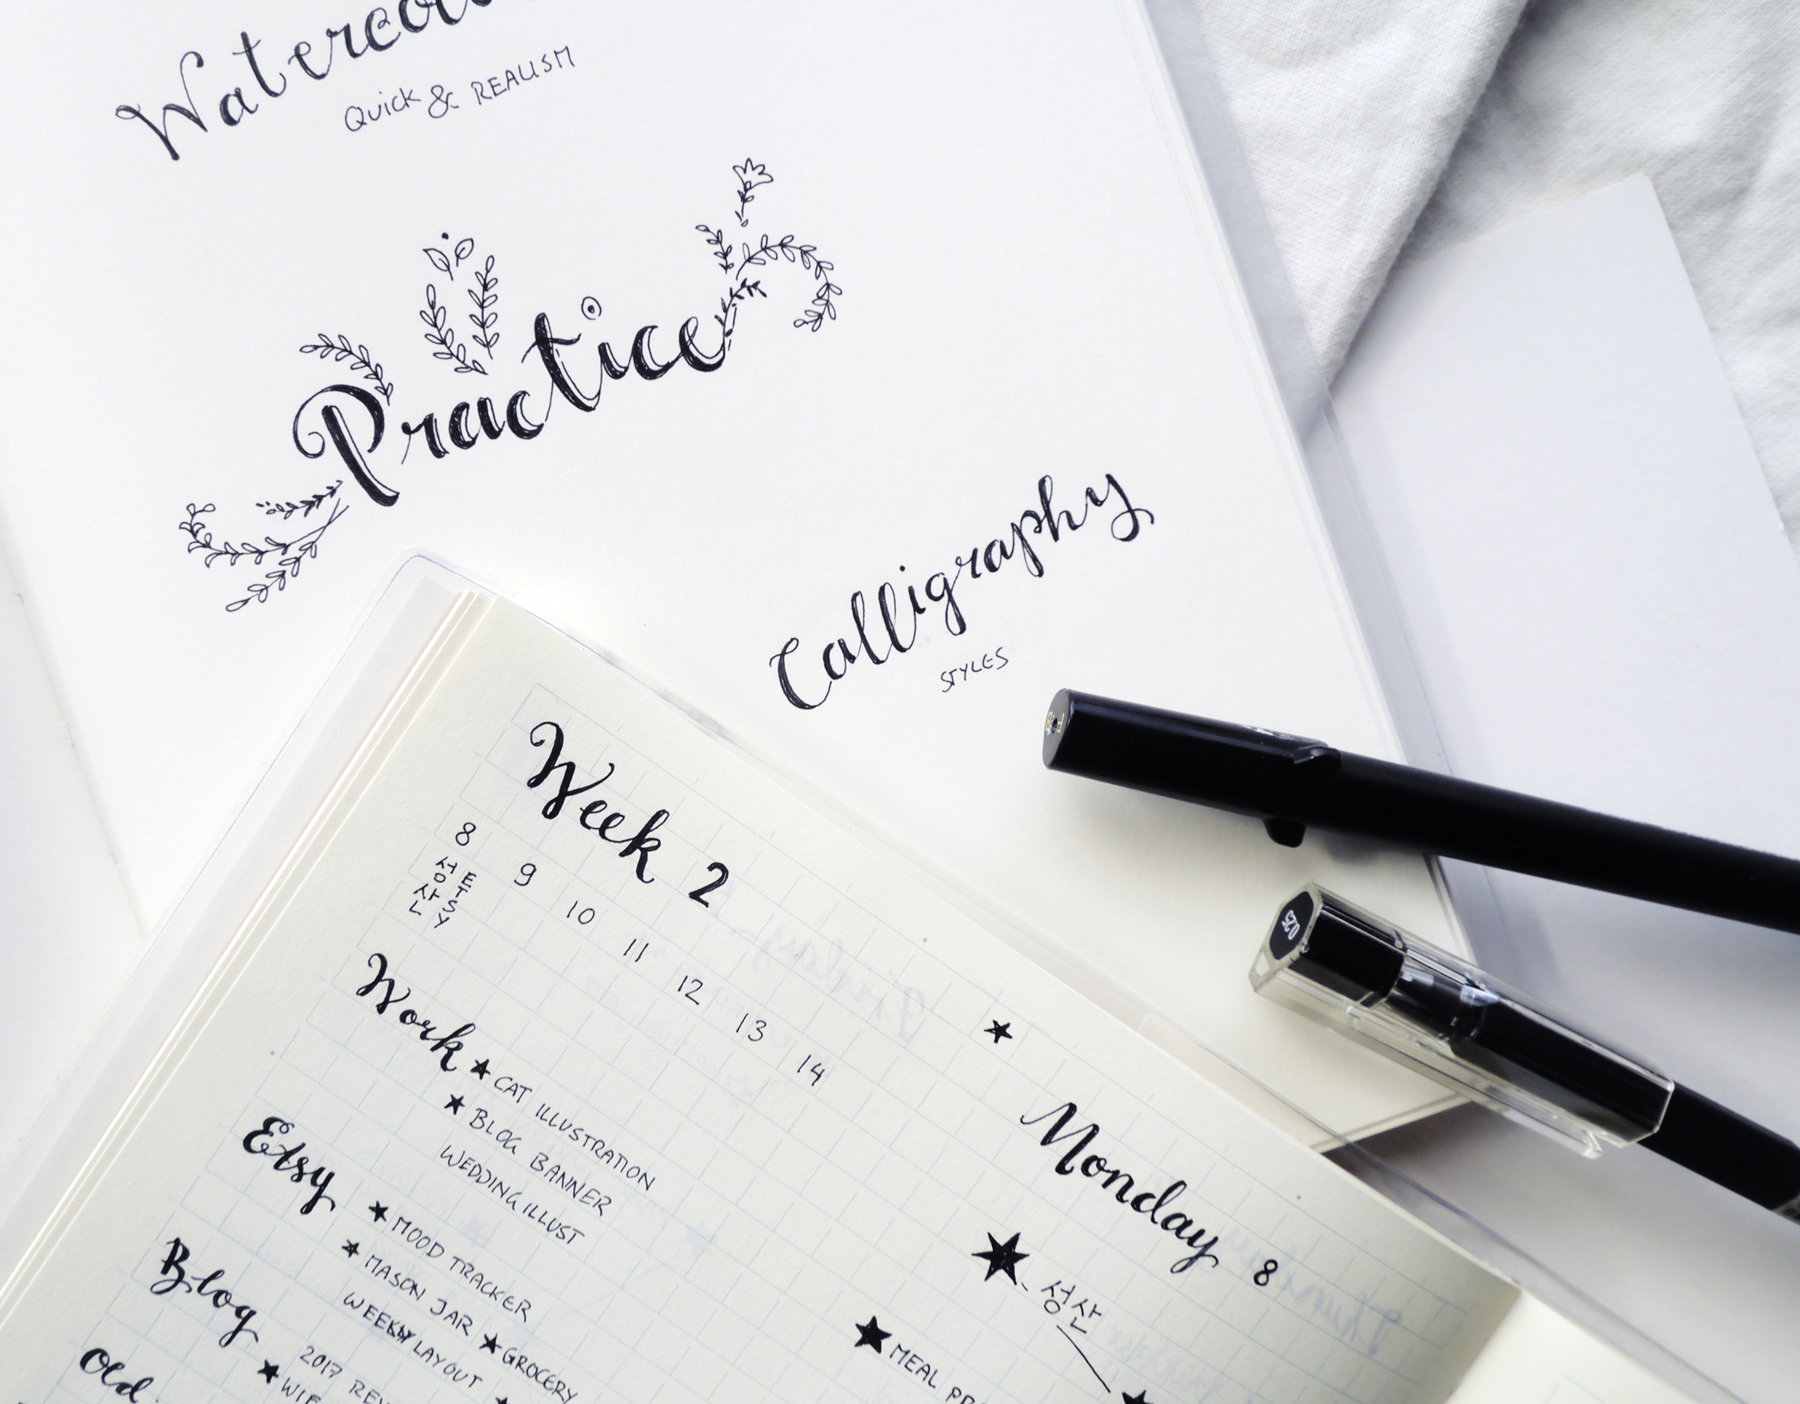 Quick & REALISM
Practice
Calligraphy
STYLES
0.25
Week 2
8 9 10 11 12 13 14
성산
ETSY
Work
★ CAT ILLUSTRATION
★ BLOG BANNER
WEDDING ILLUST
Etsy
★ MOOD TRACKER
★ MASON JAR
WEEKLY LAYOUT
★ GROCERY
Blog
2017
Old
Monday 8
성산
★ MEAL